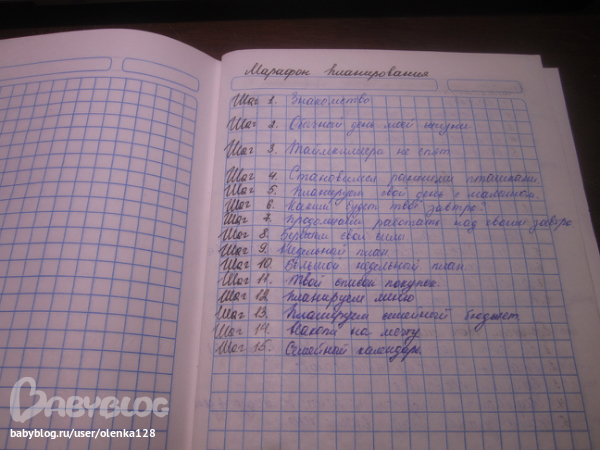 Марафон планирования
Шаг 1. Знакомство
Шаг 2. Обычный день моей жизни
Шаг 3. Таймкиллеры не спят
Шаг 4. Становимся ранними пташками
Шаг 5. Планируем свой день с малышом.
Шаг 6. Каким будет твоё завтра?
Шаг 7. Продолжаем работать над своим завтра
Шаг 8. Бережём свои силы.
Шаг 9. Недельный план
Шаг 10. Большой недельный план
Шаг 11. Твой список покупок.
Шаг 12. Планируем меню
Шаг 13. Планируем семейный бюджет
Шаг 14. Накопи на мечту
Шаг 15. Семейный календарь
BABYBLOG
babyblog.ru/user/olenka128